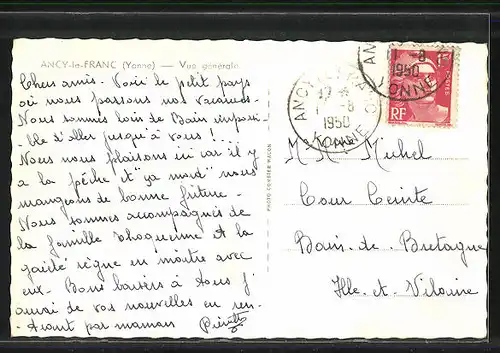 ANCY-le-FRANC (Yonne) — Vue générale
Chers amis. Voici le petit pays
où nous passons nos vacances.
Nous sommes loin de Bain impossi-
-ble d'aller jusqu'à vous !...
Nous nous plaisons ici car il y
a la pêche et "ça mord" nous
mangeons de bonne friture.
Nous sommes accompagnés de
la famille et la
gaîté règne en maître avec
eux. Bons baisers à tous j'
aurai de vos nouvelles en ren-
-trant par maman
ANCY
1 -8
1950
YONNE
1950
YONNE
POSTES
RF
PHOTO COMBIER MACON
M. Mr Michel
Tour Ceinte
Bain-de-Bretagne
Ille-et-Vilaine